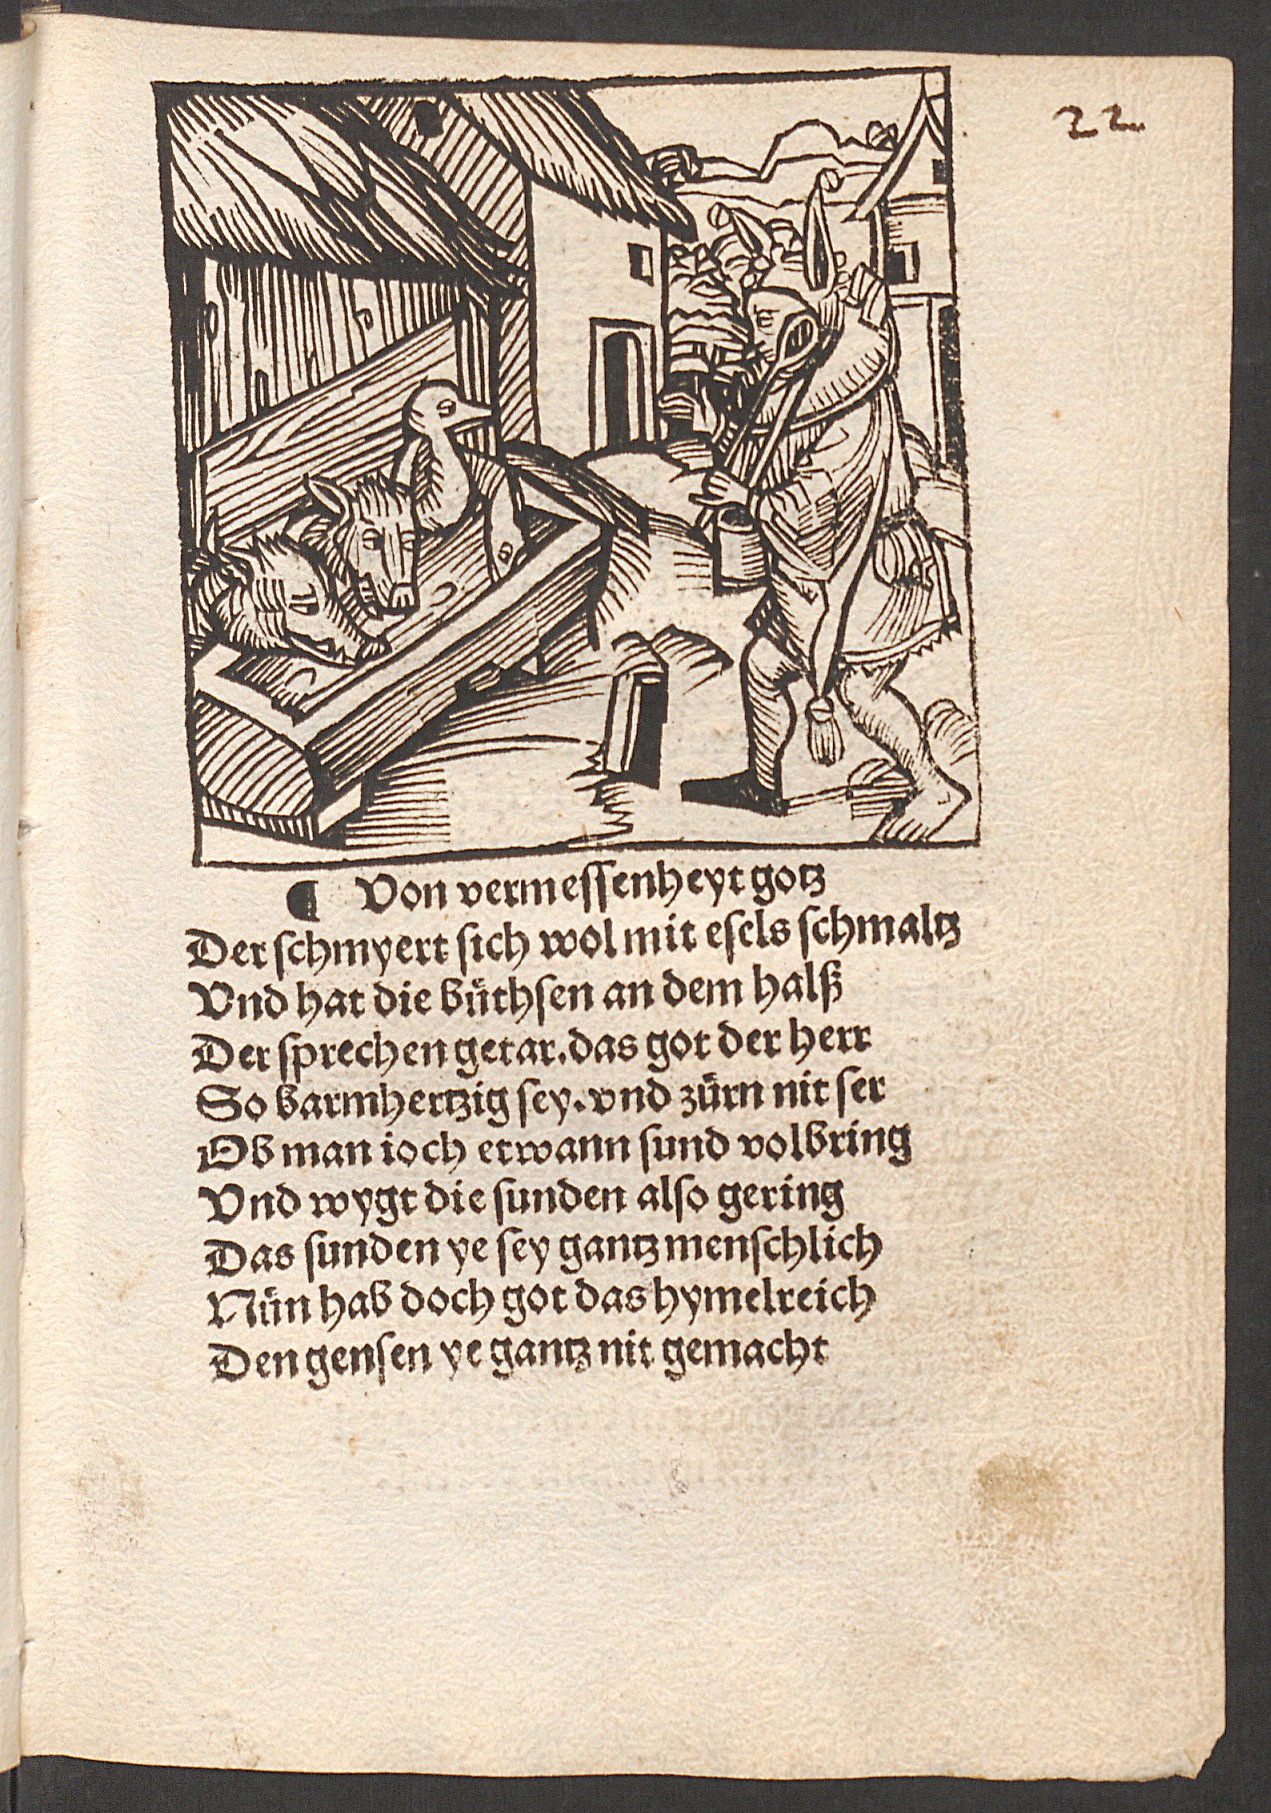 22
¶ Von vermessenheyt gotz
Der schmyert sich wol mit esels schmaltz
Vnd hat die büthsen an dem halß
Der sprechen getar. das got der herr
So barmhertzig sey. vnd zürn nit ser
Ob man ioch etwann sund volbring
Vnd wygt die sunden also gering
Das sunden ye sey gantz menschlich
Nün hab doch got das hymelreich
Den gensen ye gantz nit gemacht